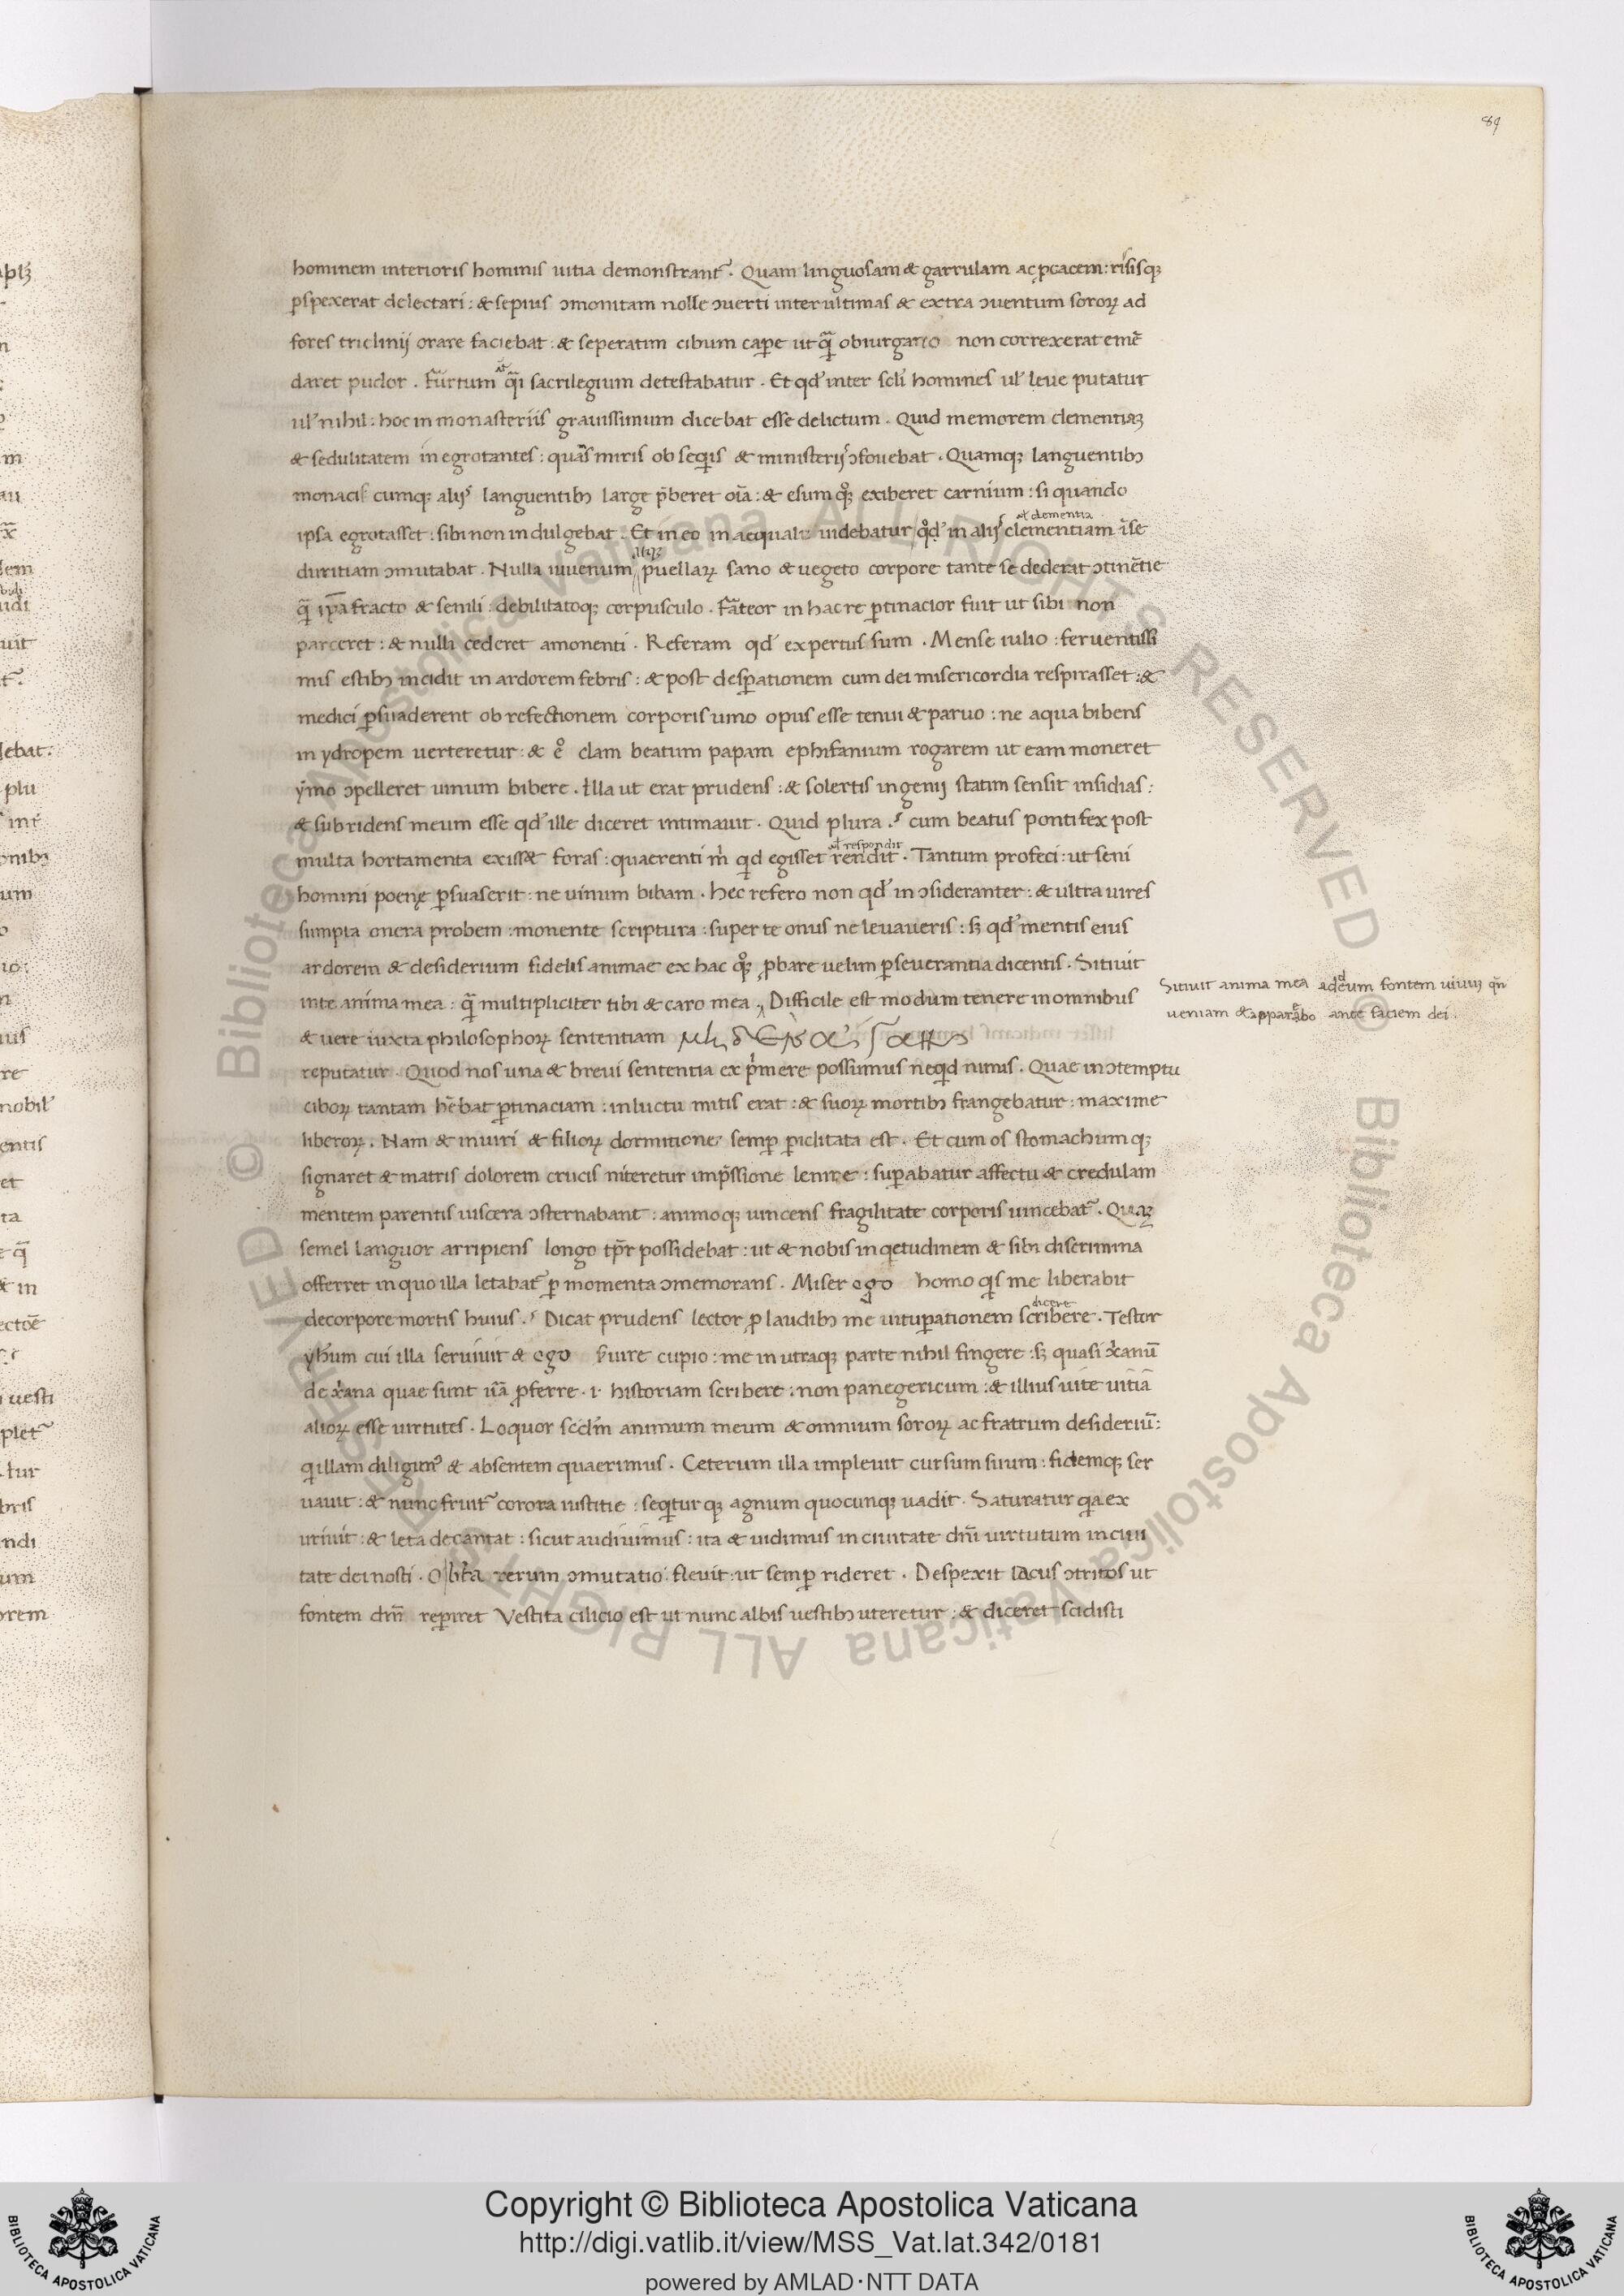 89
hominem interioris hominis uitia demonstrant᷑. Quam linguosam & garrulam ac ꝓcacem: risisqꝫ
ꝑspexerat delectari: & sepius ꝯmonitam nolle ꝯuerti inter ultimas & extra ꝯuentum sororꝝ ad
fores triclinij orare faciebat: & seperatim cibum capꝑe ut q̃ obiurgatio non correxerat emẽ
daret pudor. Furtum q̃i sacrilegium detestabatur. Et qđ inter scl̃i homines ul̃ leue putatur
ul̃ nihil: hoc in monasteriis grauissimum dicebat esse delictum. Quid memorem clementiaꝫ
& sedulitatem in egrotantes: quãs miris obseqͥis & ministerijs ꝯfouebat. Quamqꝫ languentibꝫ
monacis cumqꝫ alijs languentibꝫ large p̃beret oĩa: & esum qͦꝫ exiberet carnium: si quando
al̃ clementia
ipsa egrotasset: sibi non indulgebat. Et in eo inaequalis uidebatur qͦđ in alijs clementiam ĩ se
itaqꝫ
duritiam ꝯmutabat. Nulla iuuenum puellarꝝ sano & uegeto corpore tante se dederat ꝯtinẽtie
q̃ ip̃a fracto & senili: debilitatoqꝫ corpusculo. Fateor in hac re ꝑtinacior fuit ut sibi non
parceret: & nulli cederet amonenti. Referam qđ expertus sum. Mense iulio: feruentissi
mis estibꝫ incidit in ardorem febris: & post desꝑationem cum dei misericordia respirasset: &
medici ꝑsuaderent ob refectionem corporis uino opus esse tenui & paruo: ne aqua bibens
in ydropem uerteretur: & eͦ clam beatum papam ephifanium rogarem ut eam moneret
ymo ꝯpelleret uinum bibere. Illa ut erat prudens: & solertis ingenij statim sensit insidias:
& subridens meum esse qđ ille diceret intimauit. Quid plura? cum beatus pontifex post
al̃ respondit
multa hortamenta exisset foras: quaerenti mͥ qͥd egisset rendit. Tantum profeci: ut seni
homini poenę ꝑsuaserit: ne uinum bibam. hec refero non qđ inꝯsideranter: & ultra uires
sumpta onera probem: monente scriptura: super te onus ne leuaueris: sꝫ qđ mentis eius
ardorem & desiderium fidelis animae ex hac qͦꝫ ꝓbare uelim ꝑseuerantia dicentis. Sitiuit
in te anima mea: q̃ multipliciter tibi & caro mea. Difficile est modum tenere in omnibus
Sitiuit anima mea ad deum fontem uiuuꝫ qñ
ueniam & apparebo ante faciem dei.
& uere iuxta philosophorꝝ sententiam
reputatur. Quod nos una & breui sententia expͥmere possumus ne qͥd nimis. Quae in ꝯtemptu
ciborꝝ tantam hẽbat ꝑtinaciam: in luctu mitis erat: & suorꝝ mortibꝫ frangebatur: maxime
liberorꝝ. Nam & in uiri & filiorꝝ dormitione semꝑ ꝑiclitata est. Et cum os stomachumqꝫ
signaret & matris dolorem crucis niteretur imp̃ssione lenire: suꝑabatur affectu & credulam
mentem parentis uiscera ꝯsternabant: animoqꝫ uincens fragilitate corporis uincebat᷑. Quaꝫ
semel languor arripiens longo tp̃r possidebat: ut & nobis inqͥetudinem & sibi discrimina
offerret in quo illa letabat᷑ ꝑ momenta ꝯmemorans. Miser ego homo qͥs me liberabit
dicere
de corpore mortis huius? Dicat prudens lector ꝓ laudibꝫ me uituꝑationem scribere. Testor
yh̃um cui illa seruiuit & ego ſuire cupio: me in utraqꝫ parte nihil fingere: sꝫ quasi x̃anũ
de x̃ana quae sunt uã ꝓferre. i. historiam scribere: non panegericum: & illius uite uitia
aliorꝝ esse uirtutes. Loquor scdm̃ animum meum & omnium sororꝝ ac fratrum desideriũ:
qͥ illam diligimꝰ & absentem quaerimus. Ceterum illa impleuit cursum suum: fidemqꝫ ser
uauit: & nunc fruit᷑ corora iustitie: seqͥturqꝫ agnum quocunqꝫ uadit. Saturatur qͥa ex
uriuit: & leta decantat: sicut audiuimus: ita & uidimus in ciuitate dñi uirtutum in ciui
tate dei nosti. O bt̃a rerum ꝯmutatio. fleuit: ut semꝑ rideret. Despexit lacus ꝯtritos ut
fontem dñm reꝑiret Vestita cilicio est ut nunc albis uestibꝫ uteretur: & diceret scidisti
Copyright © Biblioteca Apostolica Vaticana
http://digi.vatlib.it/view/MSS_Vat.lat.342/0181
powered by AMLAD·NTT DATA